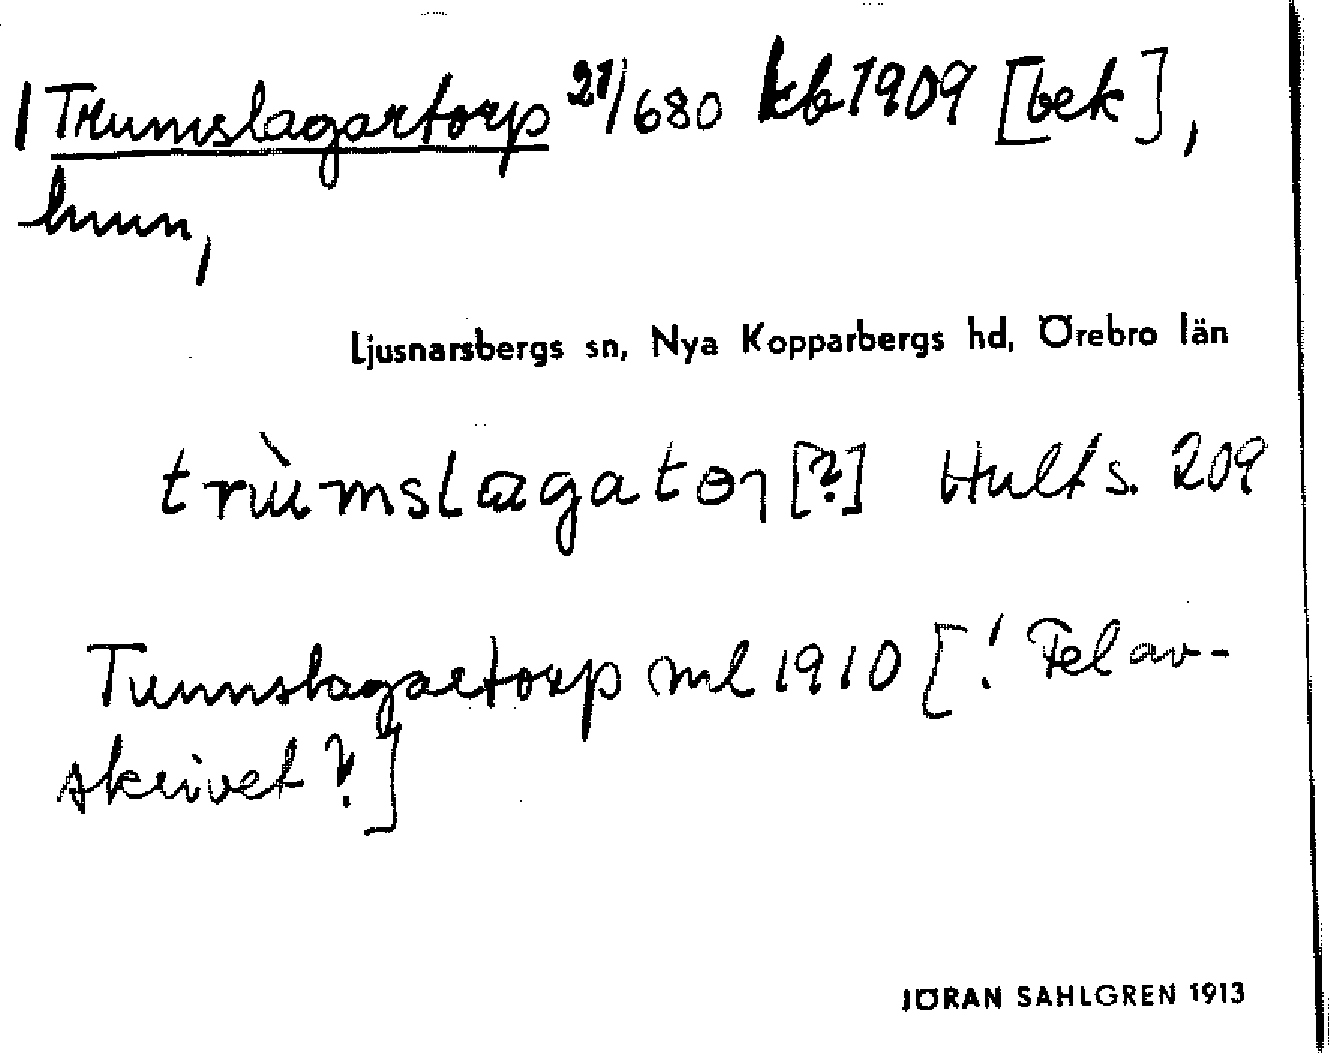 Trumslagartorp 21/680 kb 1909 [bek],
hmn,
Ljusnarsbergs sn, Nya Kopparbergs hd, Örebro län
trùmslagator [?] Hult s. 209
Tunnslagartorp ml 1910 [! Fel av-
skrivet?]
JÖRAN SAHLGREN 1913